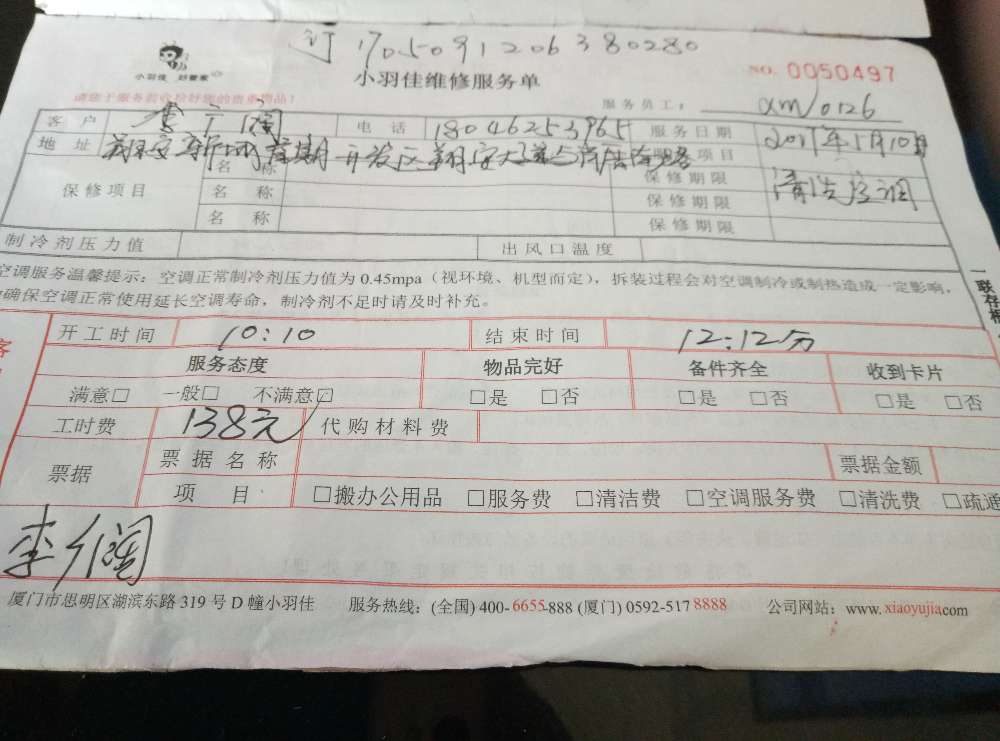 订 1705091206380280
小羽佳 好管家
小羽佳维修服务单
NO. 0050497
请您于服务前收拾好您的贵重物品!
服务员工: xm/0126
客户 李 阔 电话 18046253965 服务日期 2017年5月10日
地址 翔安新城 期开发区翔安大道与 项目 清洗空调
保修项目 名称 保修期限
名称 保修期限
名称 保修期限
制冷剂压力值 出风口温度
空调服务温馨提示: 空调正常制冷剂压力值为 0.45mpa(视环境、机型而定), 拆装过程会对空调制冷或制热造成一定影响,
确保空调正常使用延长空调寿命, 制冷剂不足时请及时补充。
一联存根
开工时间 10:10 结束时间 12:12分
服务态度 物品完好 备件齐全 收到卡片
满意□ 一般□ 不满意□ □是 □否 □是 □否 □是 □否
工时费 138元 代购材料费
票据 票据名称 票据金额
项目 □搬办公用品 □服务费 □清洁费 □空调服务费 □清洗费 □疏通
李 阔
厦门市思明区湖滨东路 319 号 D 幢小羽佳 服务热线: (全国) 400-6655-888 (厦门) 0592-517 8888 公司网站: www.xiaoyujia.com